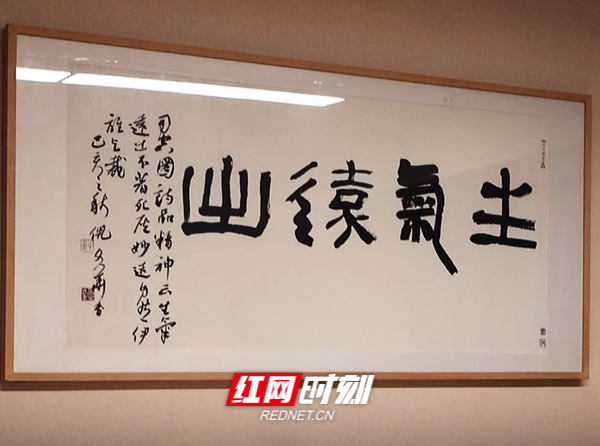 生氣遠出
司空圖詩品精神云生氣
遠出不着死灰妙造自然伊
誰与裁
己亥之秋倪文華書
红网时刻
REDNET.CN